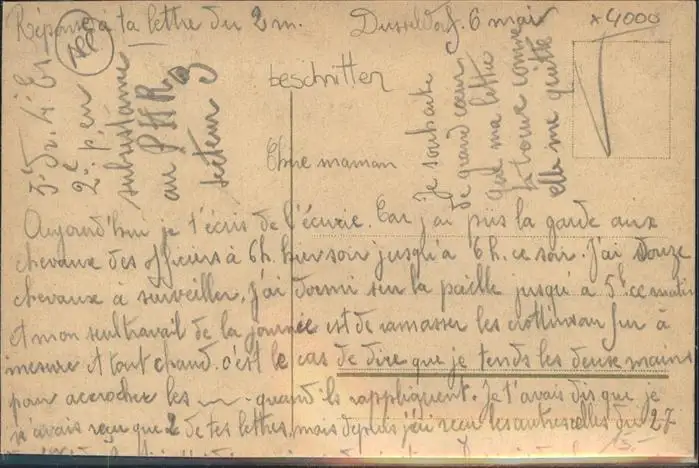 Réponse à ta lettre du 2 m. Dusseldorf. 6 mai
x 4000
beschnitten
2e p. en
subsistance
au PHR
secteur 9
Je souhaite
de grand cœur
que ma lettre
te trouve comme
elle me quitte
Chre maman
Aujourd'hui je t'écris de l'écurie. Car j'ai pris la garde aux
chevaux des officiers à 6h. hier soir jusqu'à 6h. ce soir. J'ai douze
chevaux à surveiller, j'ai dormi sur la paille jusqu'à 5h. ce matin
et mon seul travail de la journée est de ramasser les crottins au fur à
mesure et tout chaud. c'est le cas de dire que je tends les deux mains
pour accrocher les quand ils rappliquent. Je t'avais dis que je
n'avais reçu que 2 de tes lettres, mais depuis j'ai reçu les autres celles du 27